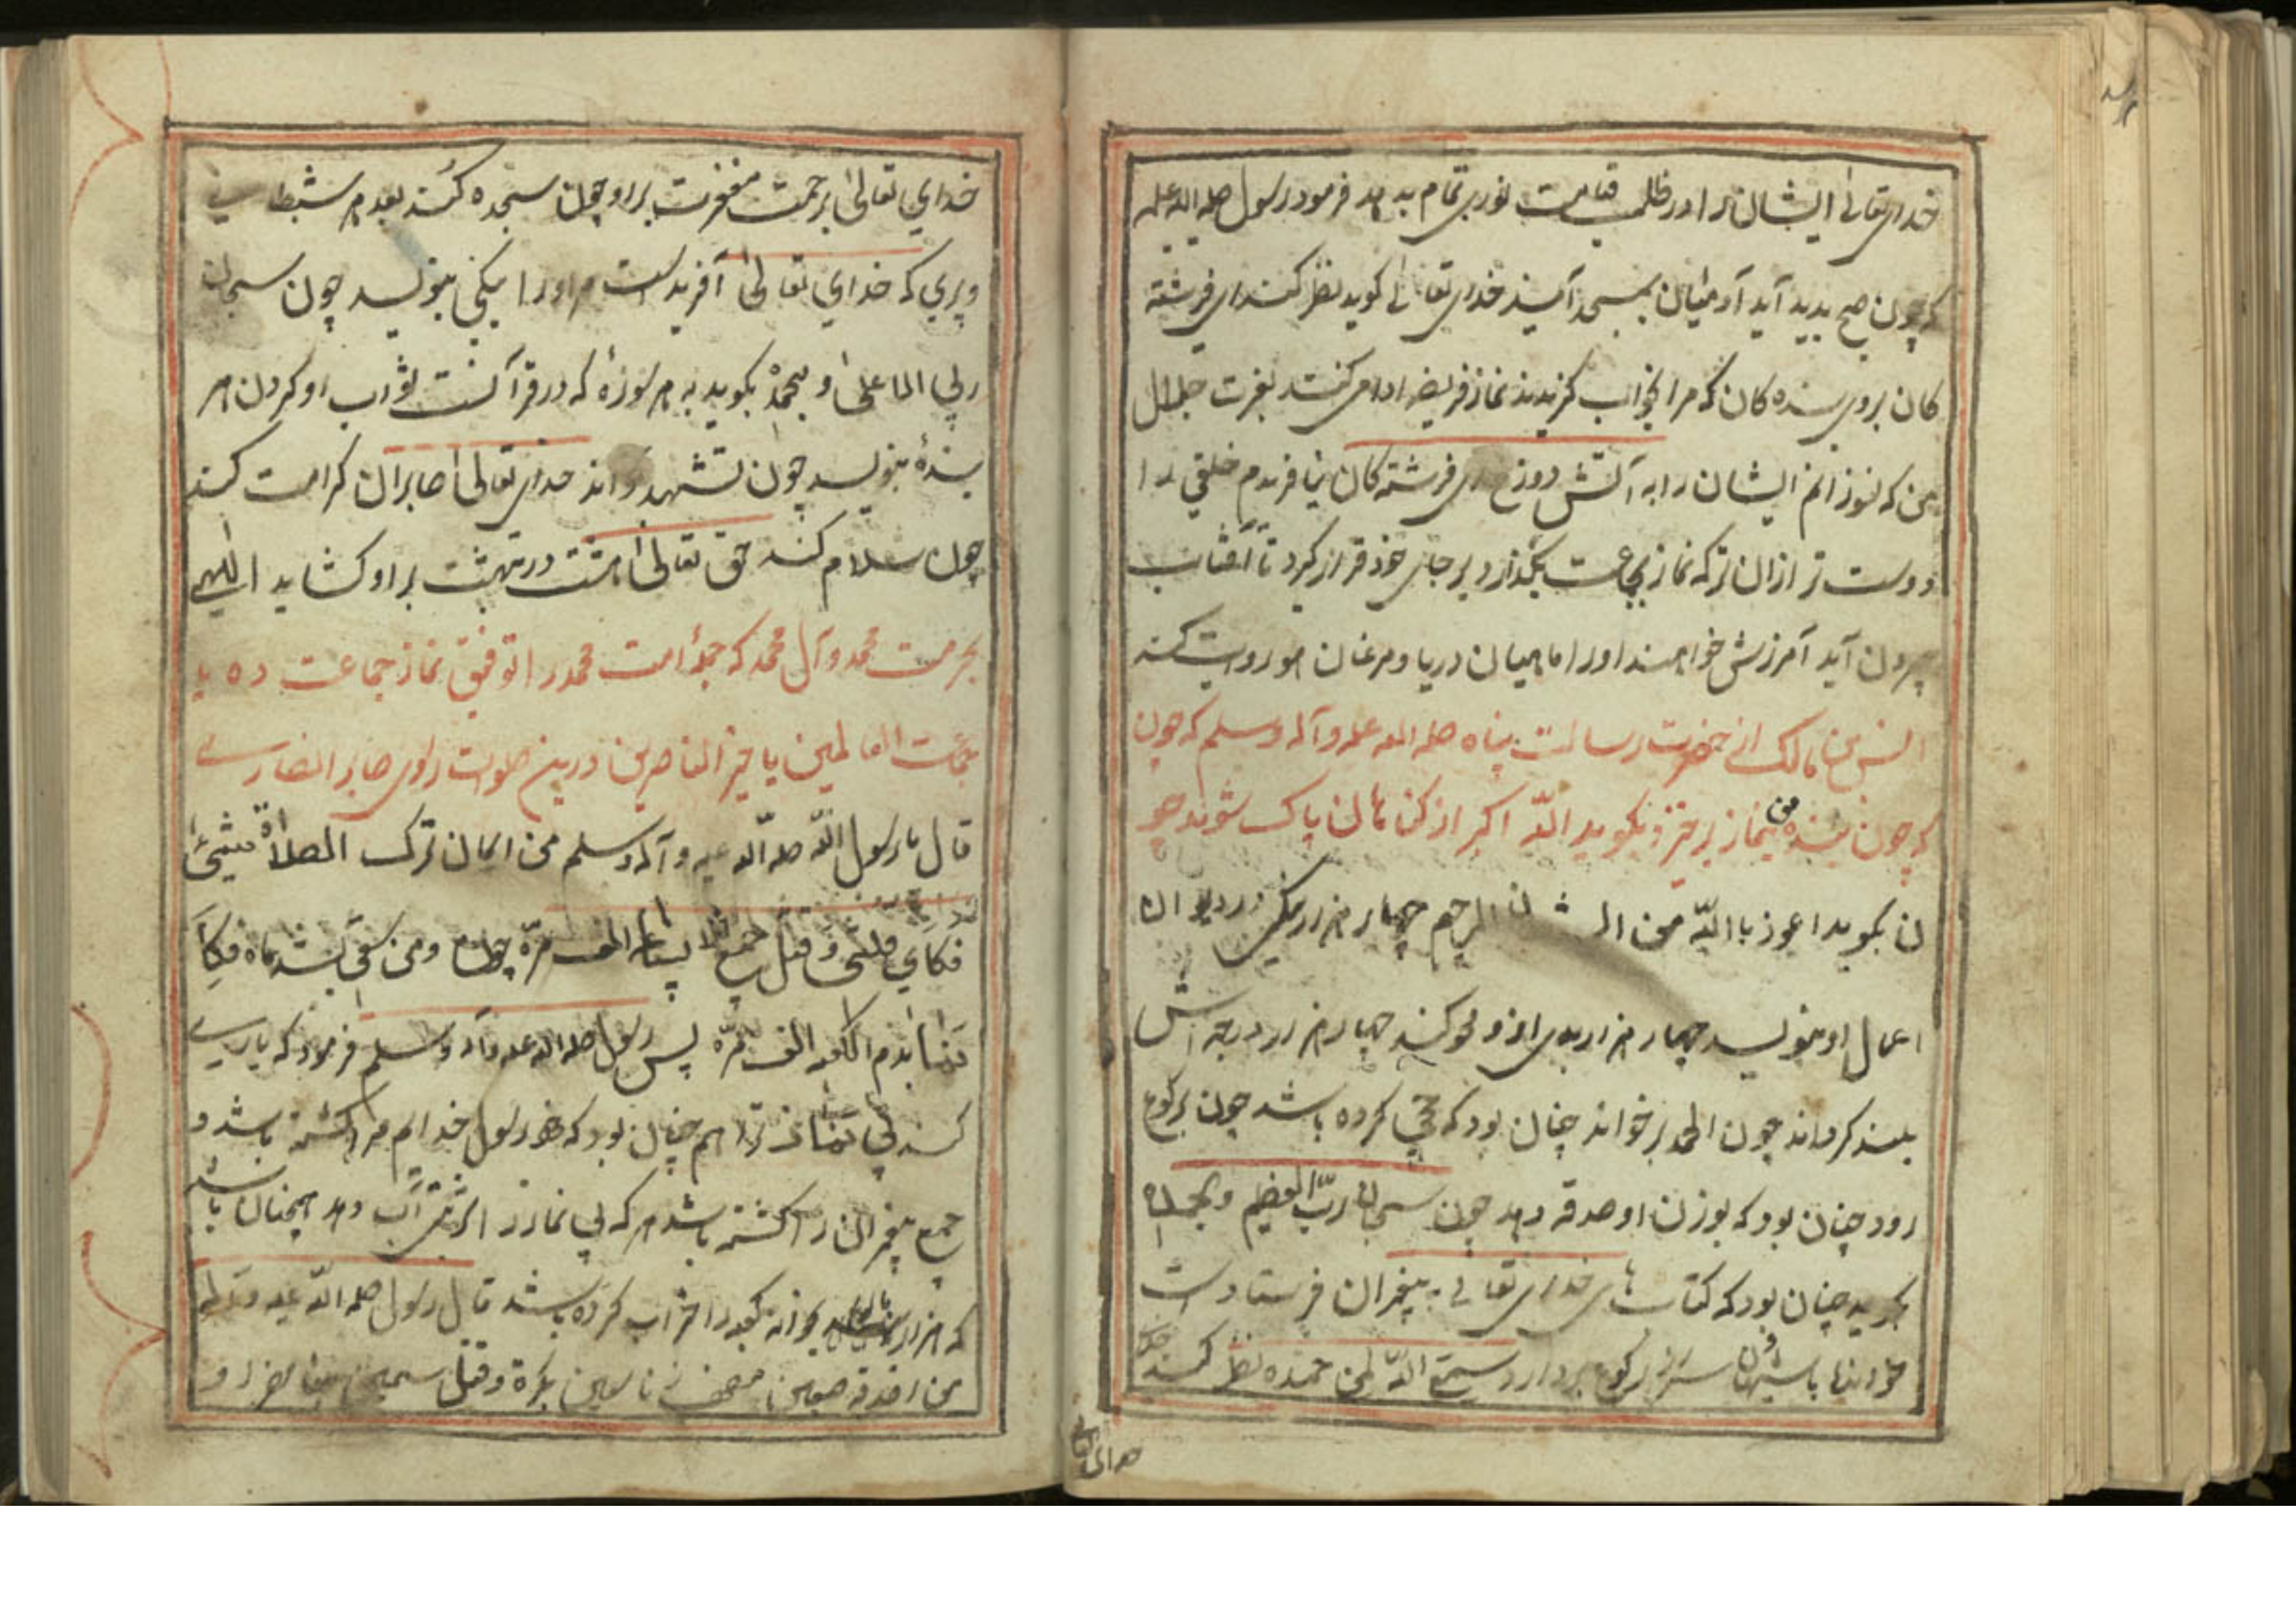 خدای تعالی ایشان را در ظلمت قیامت نوری تمام بدهد فرمود رسول صلی الله علیه
که چون صبح بدید آید آدمیان بمسجد آیند خدای تعالی کوید نظر کنند ای فرشته
کان بروی بنده کان که مرا خواب کزیدند نماز فریضه ادا می کنند بعزت جلال
من که نسوزانم ایشان را به آتش دوزخ ای فرشته کان نیافریدم خلقی را
دوست تر ازان تر که نماز بجماعت بکذارد بر جای خود قرار کیرد تا آفتاب
بیرون آید آمرزش خواهند اورا ماهیان دریا و مرغان هوا روایت کند
انس بن مالک از حضرت رسالت پناه صلی الله علیه وآله وسلم که چون
که چون بنده من بنماز برخیزد بکوید الله اکبر از کناهان پاک شوند چو
ن بکوید اعوذ باالله من الشیطان الرجیم چهار هزار نیکی در دیوان
اعمال او بنویسد چهار هزار بدی ازو محو کند چهار هزار درجه اش
بلند کرداند چون الحمد بر خواند چنان بود که حجی کرده باشد چون برکوع
رود چنان بود که بوزن او صدقه دهد چون سبحان ربی العظیم وبحمده
بکوید چنان بود که کتابهای خدای تعالی به پیغمران فرستادست
خوانده باشد چون سر از رکوع بردارد سمع الله لمن حمده نظر کند
خدای تعالی
خدای تعالی برحمت مغفرت براو چون سجده کند بعدد هر شیطانی
و پری که خدای تعالی آفریدست مر او را نیکی بنویسد چون سبحان
ربی الاعلی و بحمده بکوید به هر سوزهٔ که در قرآنست ثواب او کردن هر
بندهٔ بنویسد چون تشهد خواند خدای تعالی صابران کرامت کند
چون سلام کند حق تعالی هشت در بهشت براو کشاید اللهم
بحرمت محمد و آل محمد که جملهٔ امت محمد را توفیق نماز جماعت ده یا
العالمین یا خیر الناصرین درین صلوات راوی صابر انصاری
قال یا رسول الله صلی الله علیه وآله وسلم من اعان ترک الصلاة
فکانی وقتل جمع الف مرة و من سقی بشربة ماء فکا
الف مرة پس رسول صلی الله علیه وآله وسلم فرمود که یاری
کند بی نماز ترا هم چنان بود که خود رسول خدا ام مرا کشته باشد و
جمع پیغمران را کشته باشد هر که بی نماز را شربتی آب دهد همچنان باشد
که هزار بار خانه کعبه را خراب کرده باشد قال رسول صلی الله علیه وآله
من مصحف سبعین بکرة وقتل سبعین